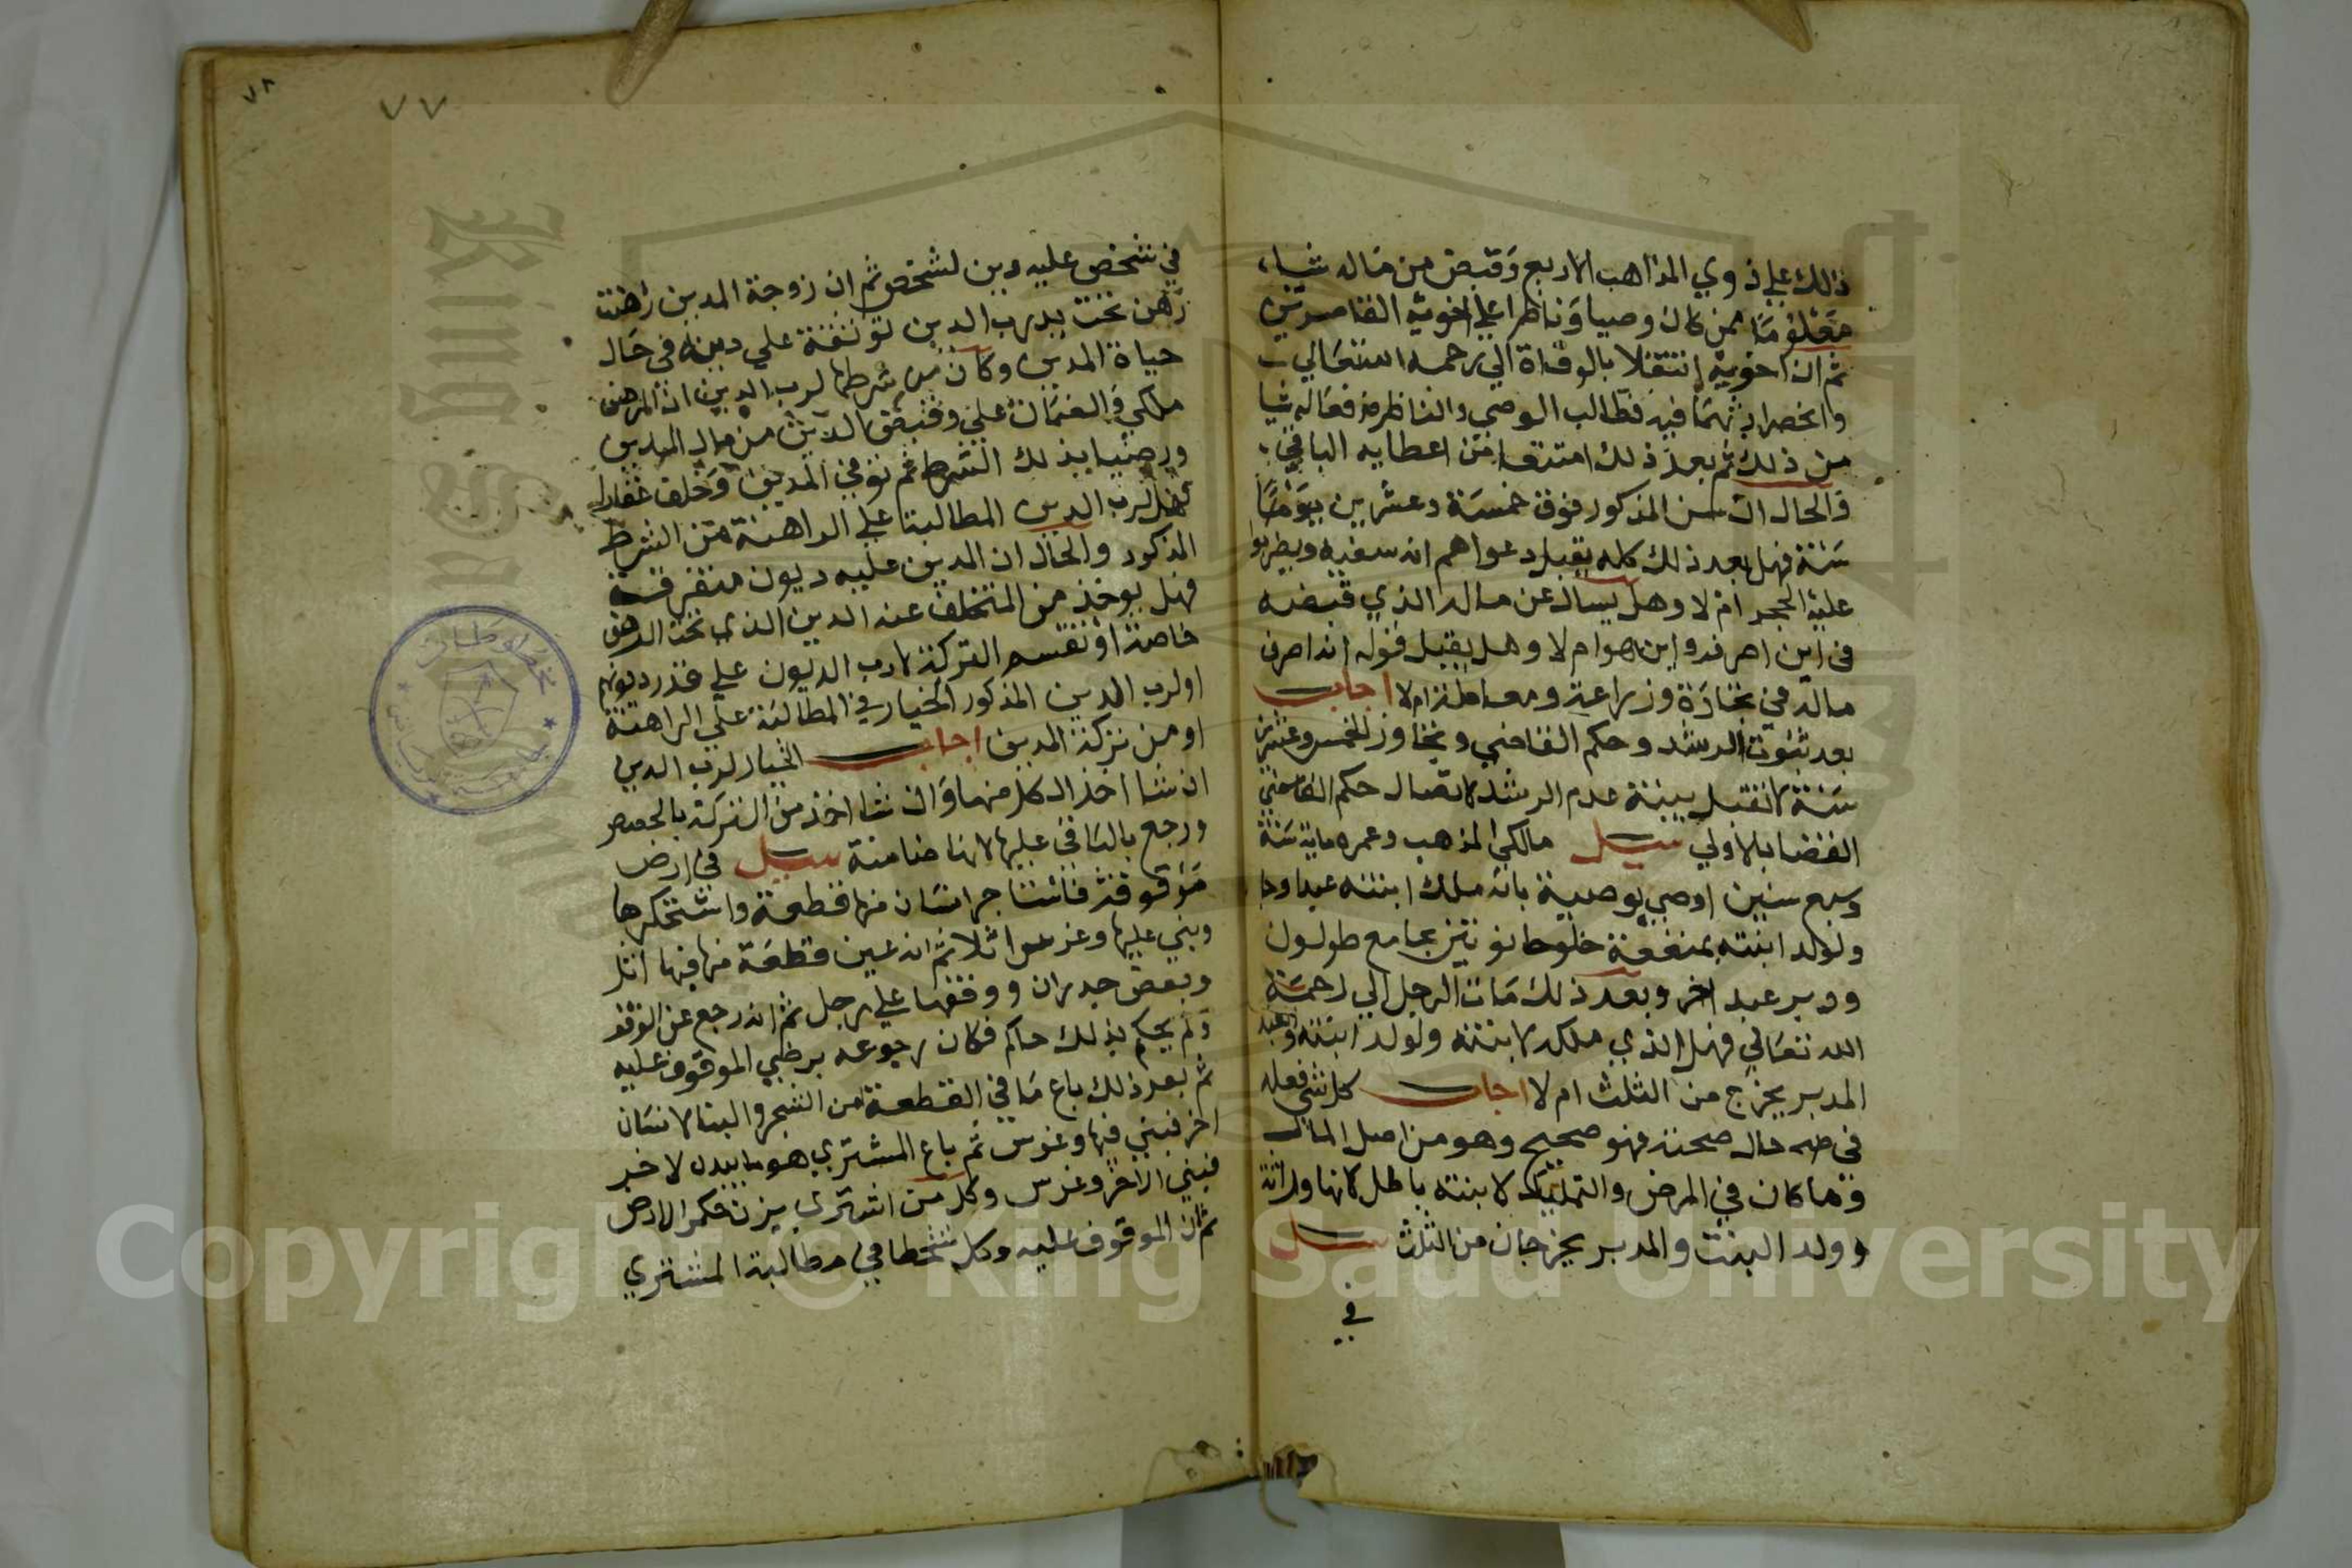 ذلك علي ذوي المذاهب الاربع وقبض من ماله شيا
معلوما ممن كان وصيا وناظرا علي اخويه القاصرين
ثم ان اخويه انتقلا بالوفاة الي رحمه الله تعالي
وانحصر ارثهما فيه فطالب الوصي والناظر فدفعا له شيا
من ذلك ثم بعد ذلك امتنعا من اعطايه الباقي
والحال ان سن المذكور فوق خمسة وعشرين يوما
سنة فهل بعد ذلك كله يقبل دعواهم انه سفيه ويضربوا
عليه الحجر ام لا وهل يسال عن ماله الذي قبضه
في اين اصرفه واين هو ام لا وهل يقبل قوله انه اصرف
ماله في تجارة وزراعة ومعاملة ام لا اجاب
بعد ثبوت الرشد وحكم القاضي وتجاوز الخمس وعشرين
سنة لا تقبل بينة عدم الرشد لاتصال حكم القاضي
القضا بالاولي سيل مالكي المذهب وعمره ماية سنة
وسبع سنين اوصي بوصية بانه ملك ابنته عبدا وحا
ولولد ابنته بمنفعة خلو حانوتين بجامع طولون
ودبر عبد اخر وبعد ذلك مات الرجل الي رحمة
الله تعالي فهل الذي ملكه لابنته ولولد ابنته والعبد
المدبر يخرج من الثلث ام لا اجاب كل شي فعله
في حال صحته فهو صحيح وهو من اصل المال
وما كان في المرض والتمليك لابنته باطل لانها وارثة
وولد البنت والمدبر يخرجان من الثلث سيل
في
٧٨
٧٧
في شخص عليه دين لشخص ثم ان زوجة المدين رهنت
رهن تحت يد رب الدين توثقة علي دينه في حال
حياة المدين وكان من شرطها لرب الدين ان الرهن
ملكي والضمان علي وقبض الدين من مال المدين
ورضيا بذلك الشرط ثم توفي المدين وخلف عقارا
فهل لرب الدين المطالبة علي الراهنة من الشرط
المذكور والحال ان المدين عليه ديون متفرقة
فهل يوخذ من المتخلف عنه الدين الذي تحت الرهن
خاصة او تقسم التركة لارب الديون علي قدر ديونهم
او لرب الدين المذكور الخيار في المطالبة علي الراهنة
او من تركة المدين اجاب الخيار لرب الدين
ان شا اخذ الكل منها وان شا اخذ من التركة بالحصص
ورجع بالباقي عليها لانها ضامنة سيل في ارض
موقوفة فاستاجر انسان منها قطعة واستحكرها
وبني عليها وغرس اثلا ثم انه عين قطعة منها فيها اثل
وبعض جدران ووقفها علي رجل ثم انه رجع عن الوقف
ولم يحكم بذلك حاكم فكان رجوعه برضي الموقوف عليه
ثم بعد ذلك باع ما في القطعة من الشجر والبنا لانسان
اخر فبني فيها وغرس ثم باع المشتري هو ما بيده لاخر
فبني الاخر وغرس وكل من اشتري يزن حكر الارض
ثم ان الموقوف عليه وكل شخصا في مطالبة المشتري
Copyright © King Saud University